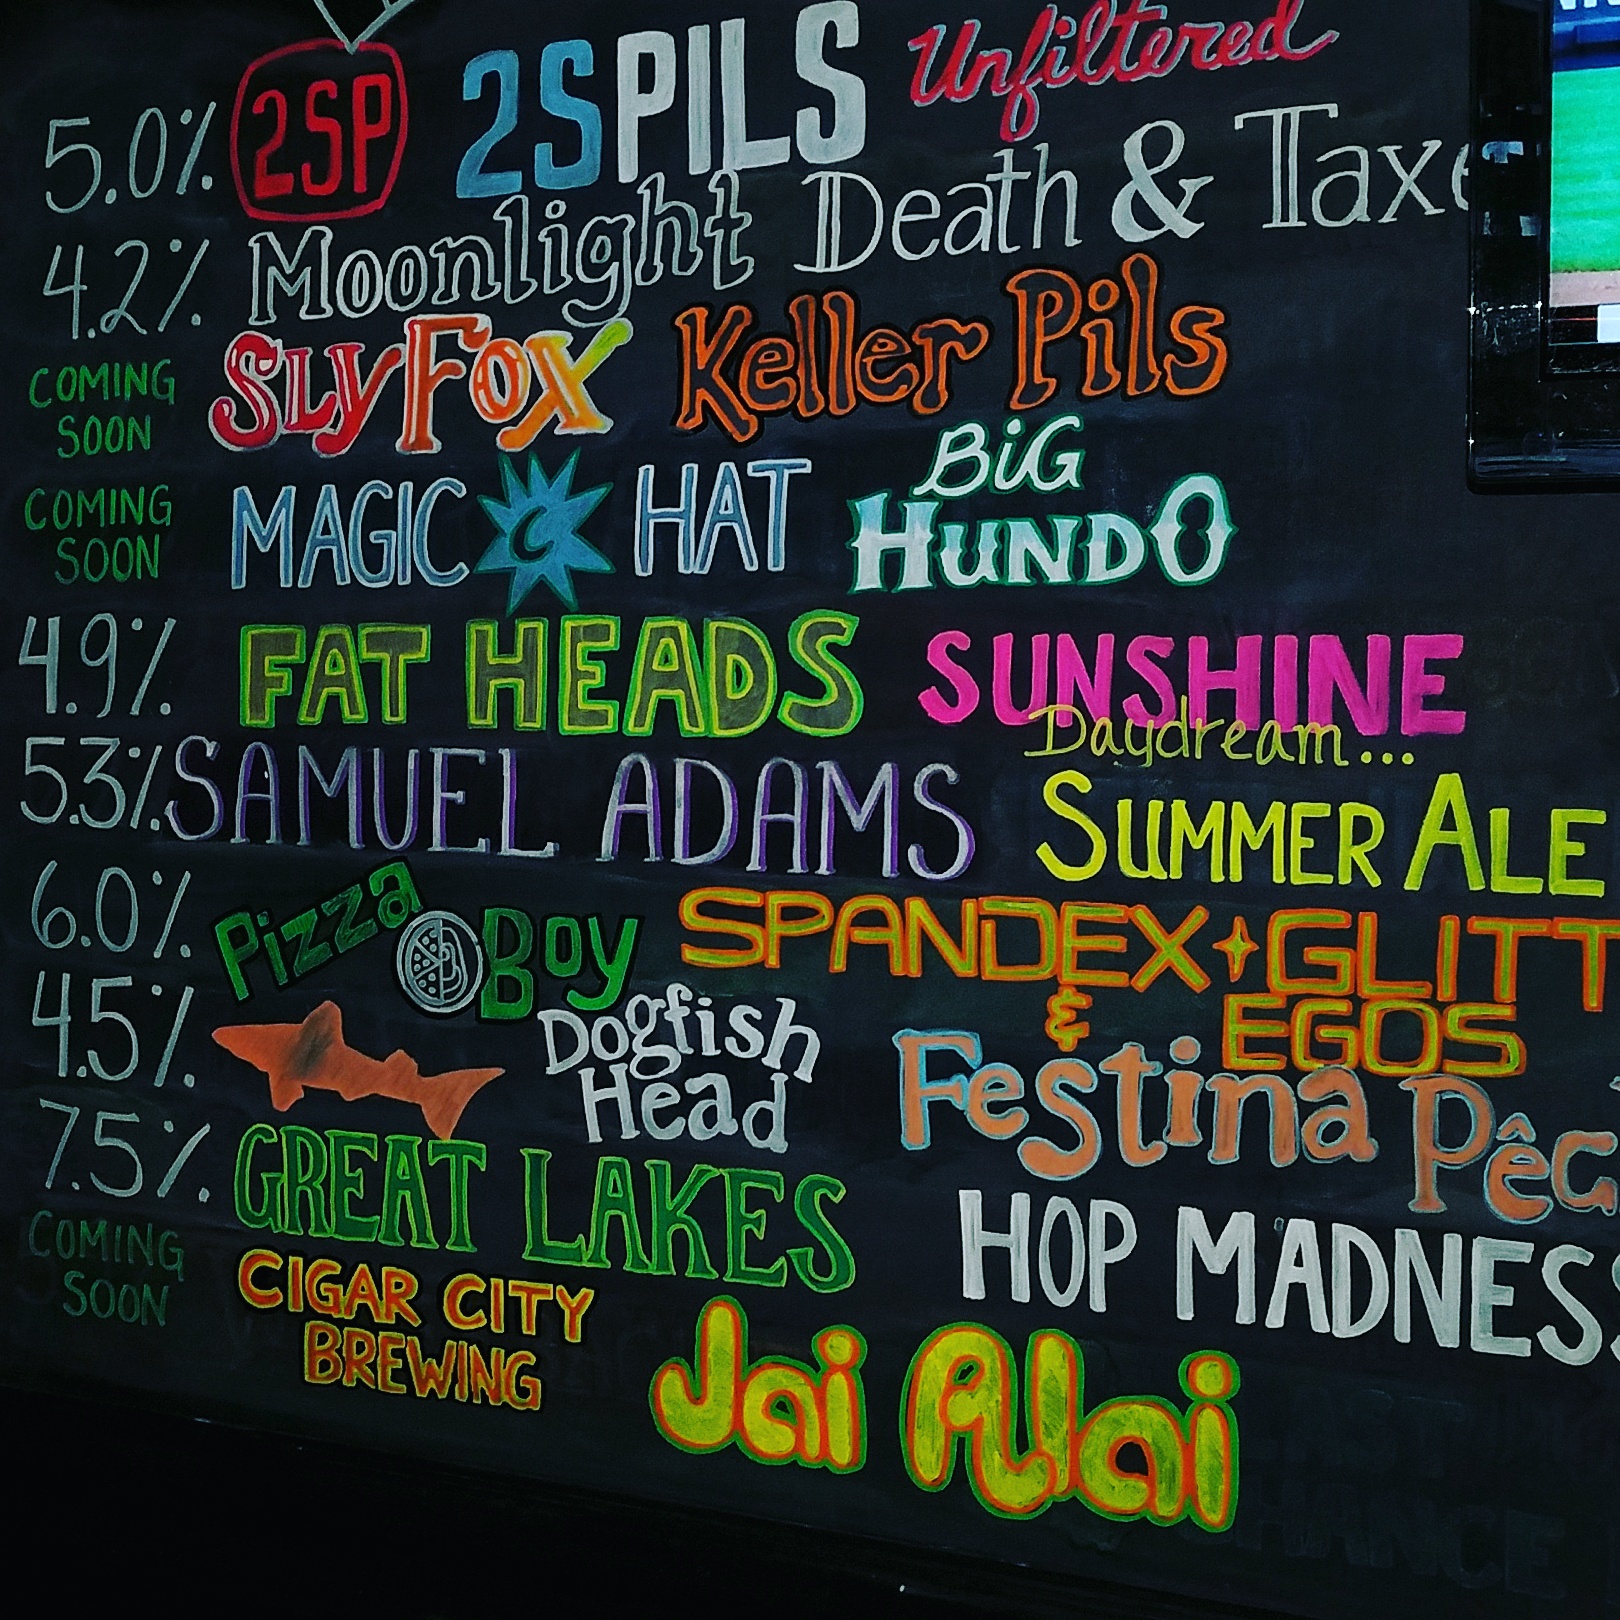 5.0% 2SP 2SPILS Unfiltered
4.2% Moonlight Death & Taxe
COMING SOON SLY FOX Keller Pils
COMING SOON MAGIC HAT BiG HUNDO
4.9% FAT HEADS SUNSHINE Daydream...
5.3% SAMUEL ADAMS SUMMER ALE
6.0% Pizza Boy SPANDEX GLITT & EGOS
4.5% Dogfish Head Festina Pêc
7.5% GREAT LAKES HOP MADNESS
COMING SOON CIGAR CITY BREWING Jai Alai